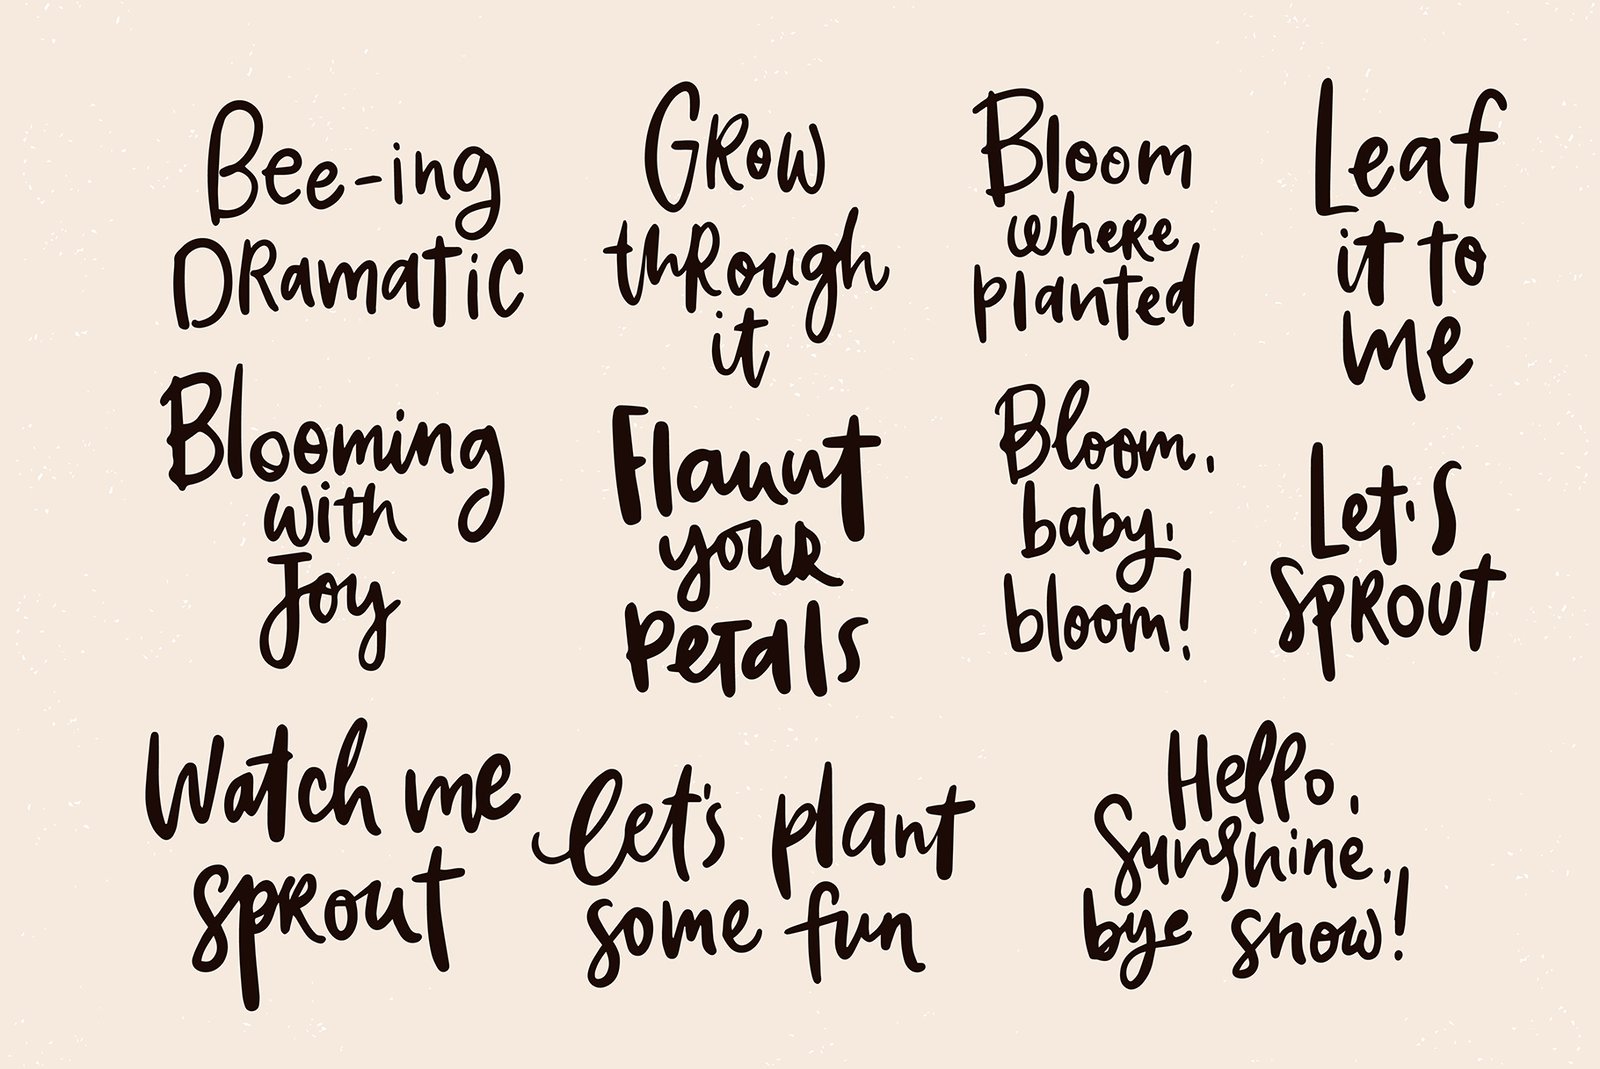 Bee-ing
Dramatic
Grow
through
it
Bloom
where
planted
Leaf
it to
me
Blooming
with
Joy
Flaunt
your
Petals
Bloom,
baby,
bloom!
Let's
Sprout
Watch me
sprout
Let's plant
some fun
Hello,
Sunshine,
bye snow!